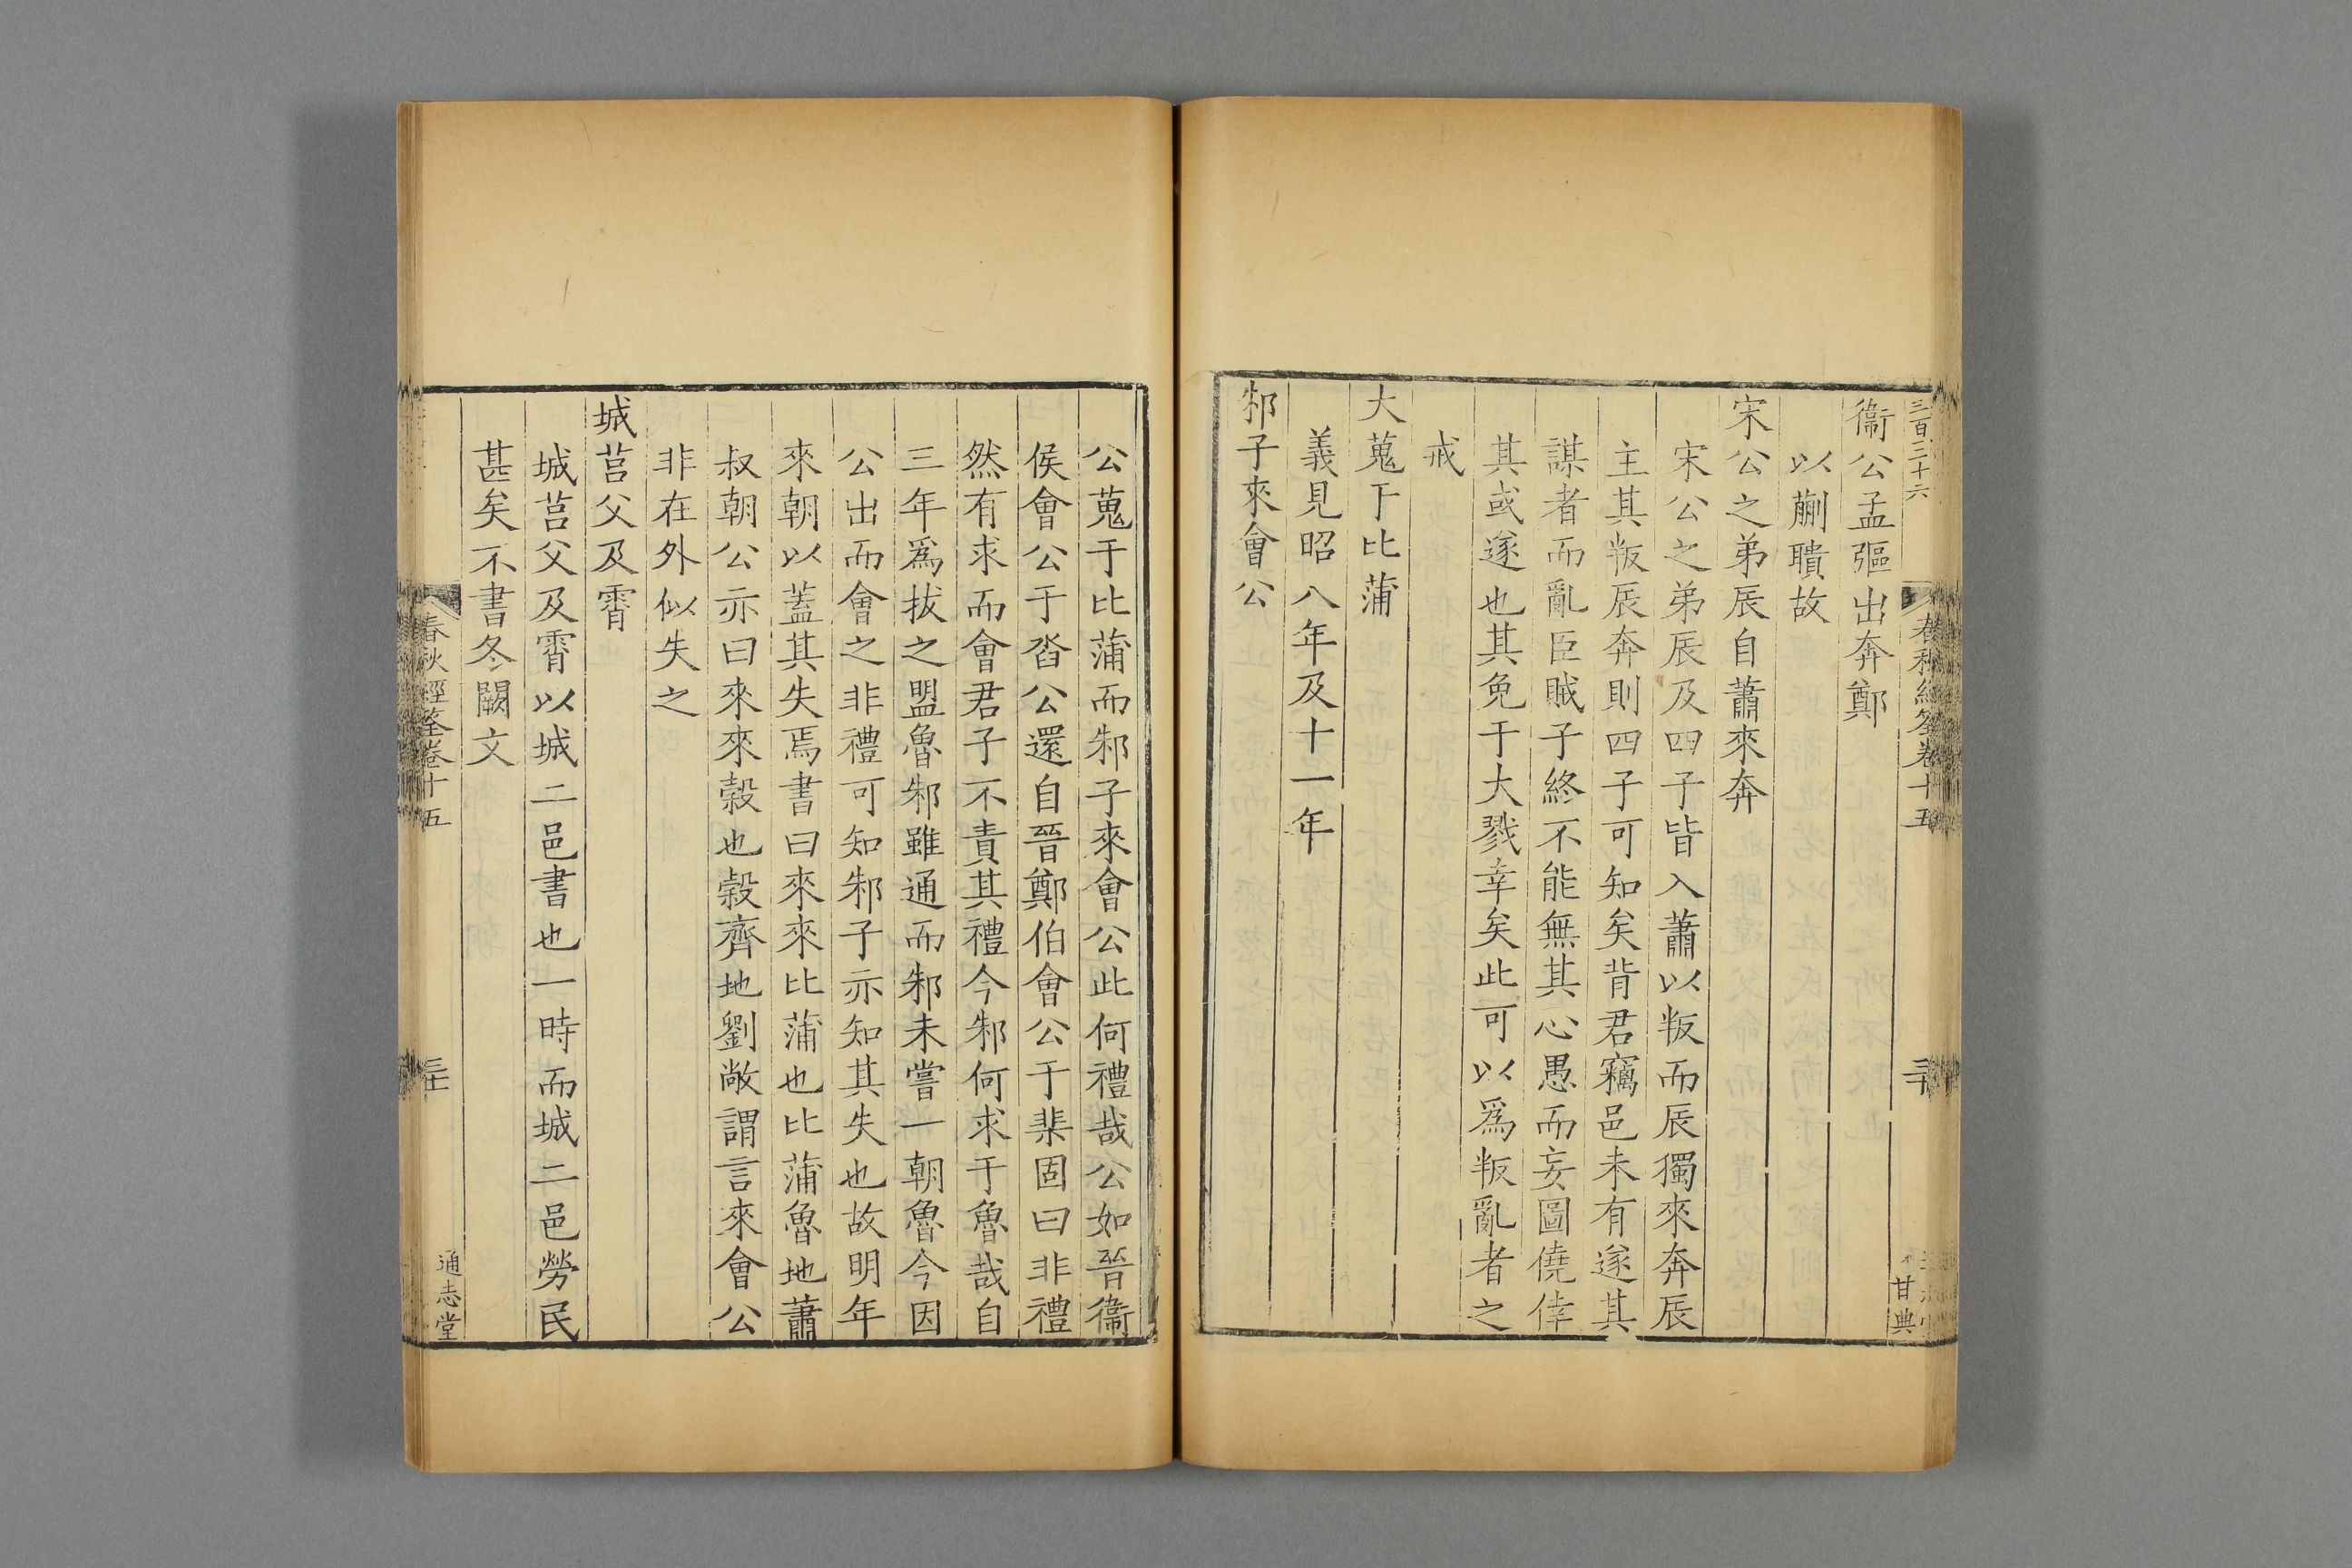 三百二十六
春秋經筌卷十五
甘典
衞公孟彄出奔鄭
以蒯聵故
宋公之弟辰自蕭來奔
宋公之弟辰及四子皆入蕭以叛而辰獨來奔辰
主其叛辰奔則四子可知矣背君竊邑未有遂其
謀者而亂臣賊子終不能無其心愚而妄圖僥倖
其或遂也其免于大戮幸矣此可以爲叛亂者之
戒
大蒐于比蒲
義見昭八年及十一年
邾子來會公
公蒐于比蒲而邾子來會公此何禮哉公如晉衞
侯會公于沓公還自晉鄭伯會公于棐固曰非禮
然有求而會君子不責其禮今邾何求于魯哉自
三年爲拔之盟魯邾雖通而邾未嘗一朝魯今因
公出而會之非禮可知邾子亦知其失也故明年
來朝以蓋其失焉書曰來來比蒲也比蒲魯地蕭
叔朝公亦曰來來榖也榖齊地劉敞謂言來會公
非在外似失之
城莒父及霄
城莒父及霄以城二邑書也一時而城二邑勞民
甚矣不書冬闕文
春秋經筌卷十五
通志堂